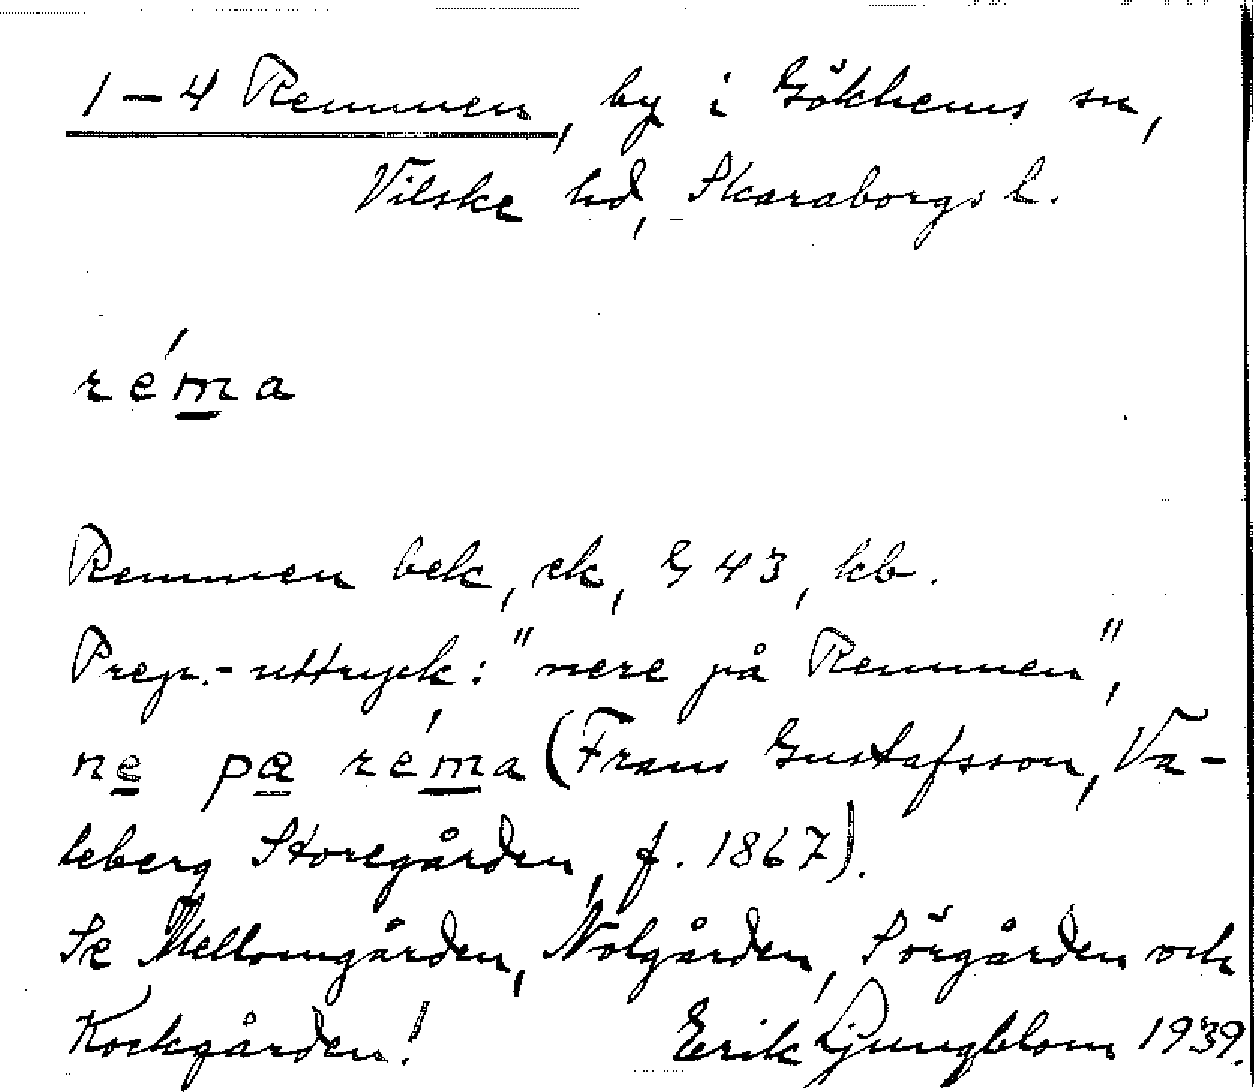 1–4 Remmen, by i Gökhems sn,
Vilske hd, Skaraborgs l.
réma
Remmen bek, ek, G 43, kb.
Prep.-uttryck: "nere på Remmen",
ne pa réma (Frans Gustafsson, Va-
leberg Storegården, f. 1867).
Se Mellomgården, Nolgården, Sörgården och
Kockgården! Erik Ljungblom 1939.